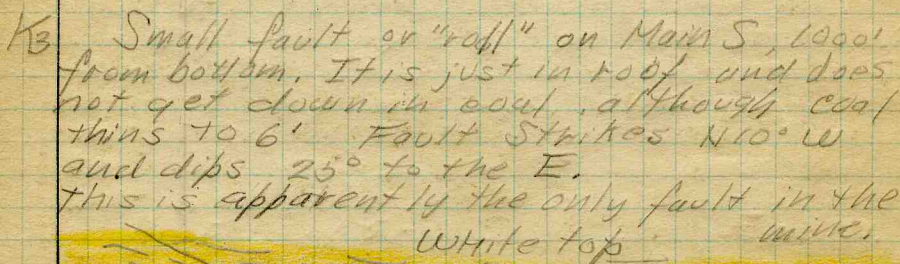 K3 Small fault or "roll" on Main S, 1000'
from bottom. It is just in roof and does
not get down in coal, although coal
thins to 6' Fault Strikes N10° W
and dips 25° to the E.
This is apparently the only fault in the
mine.
White top